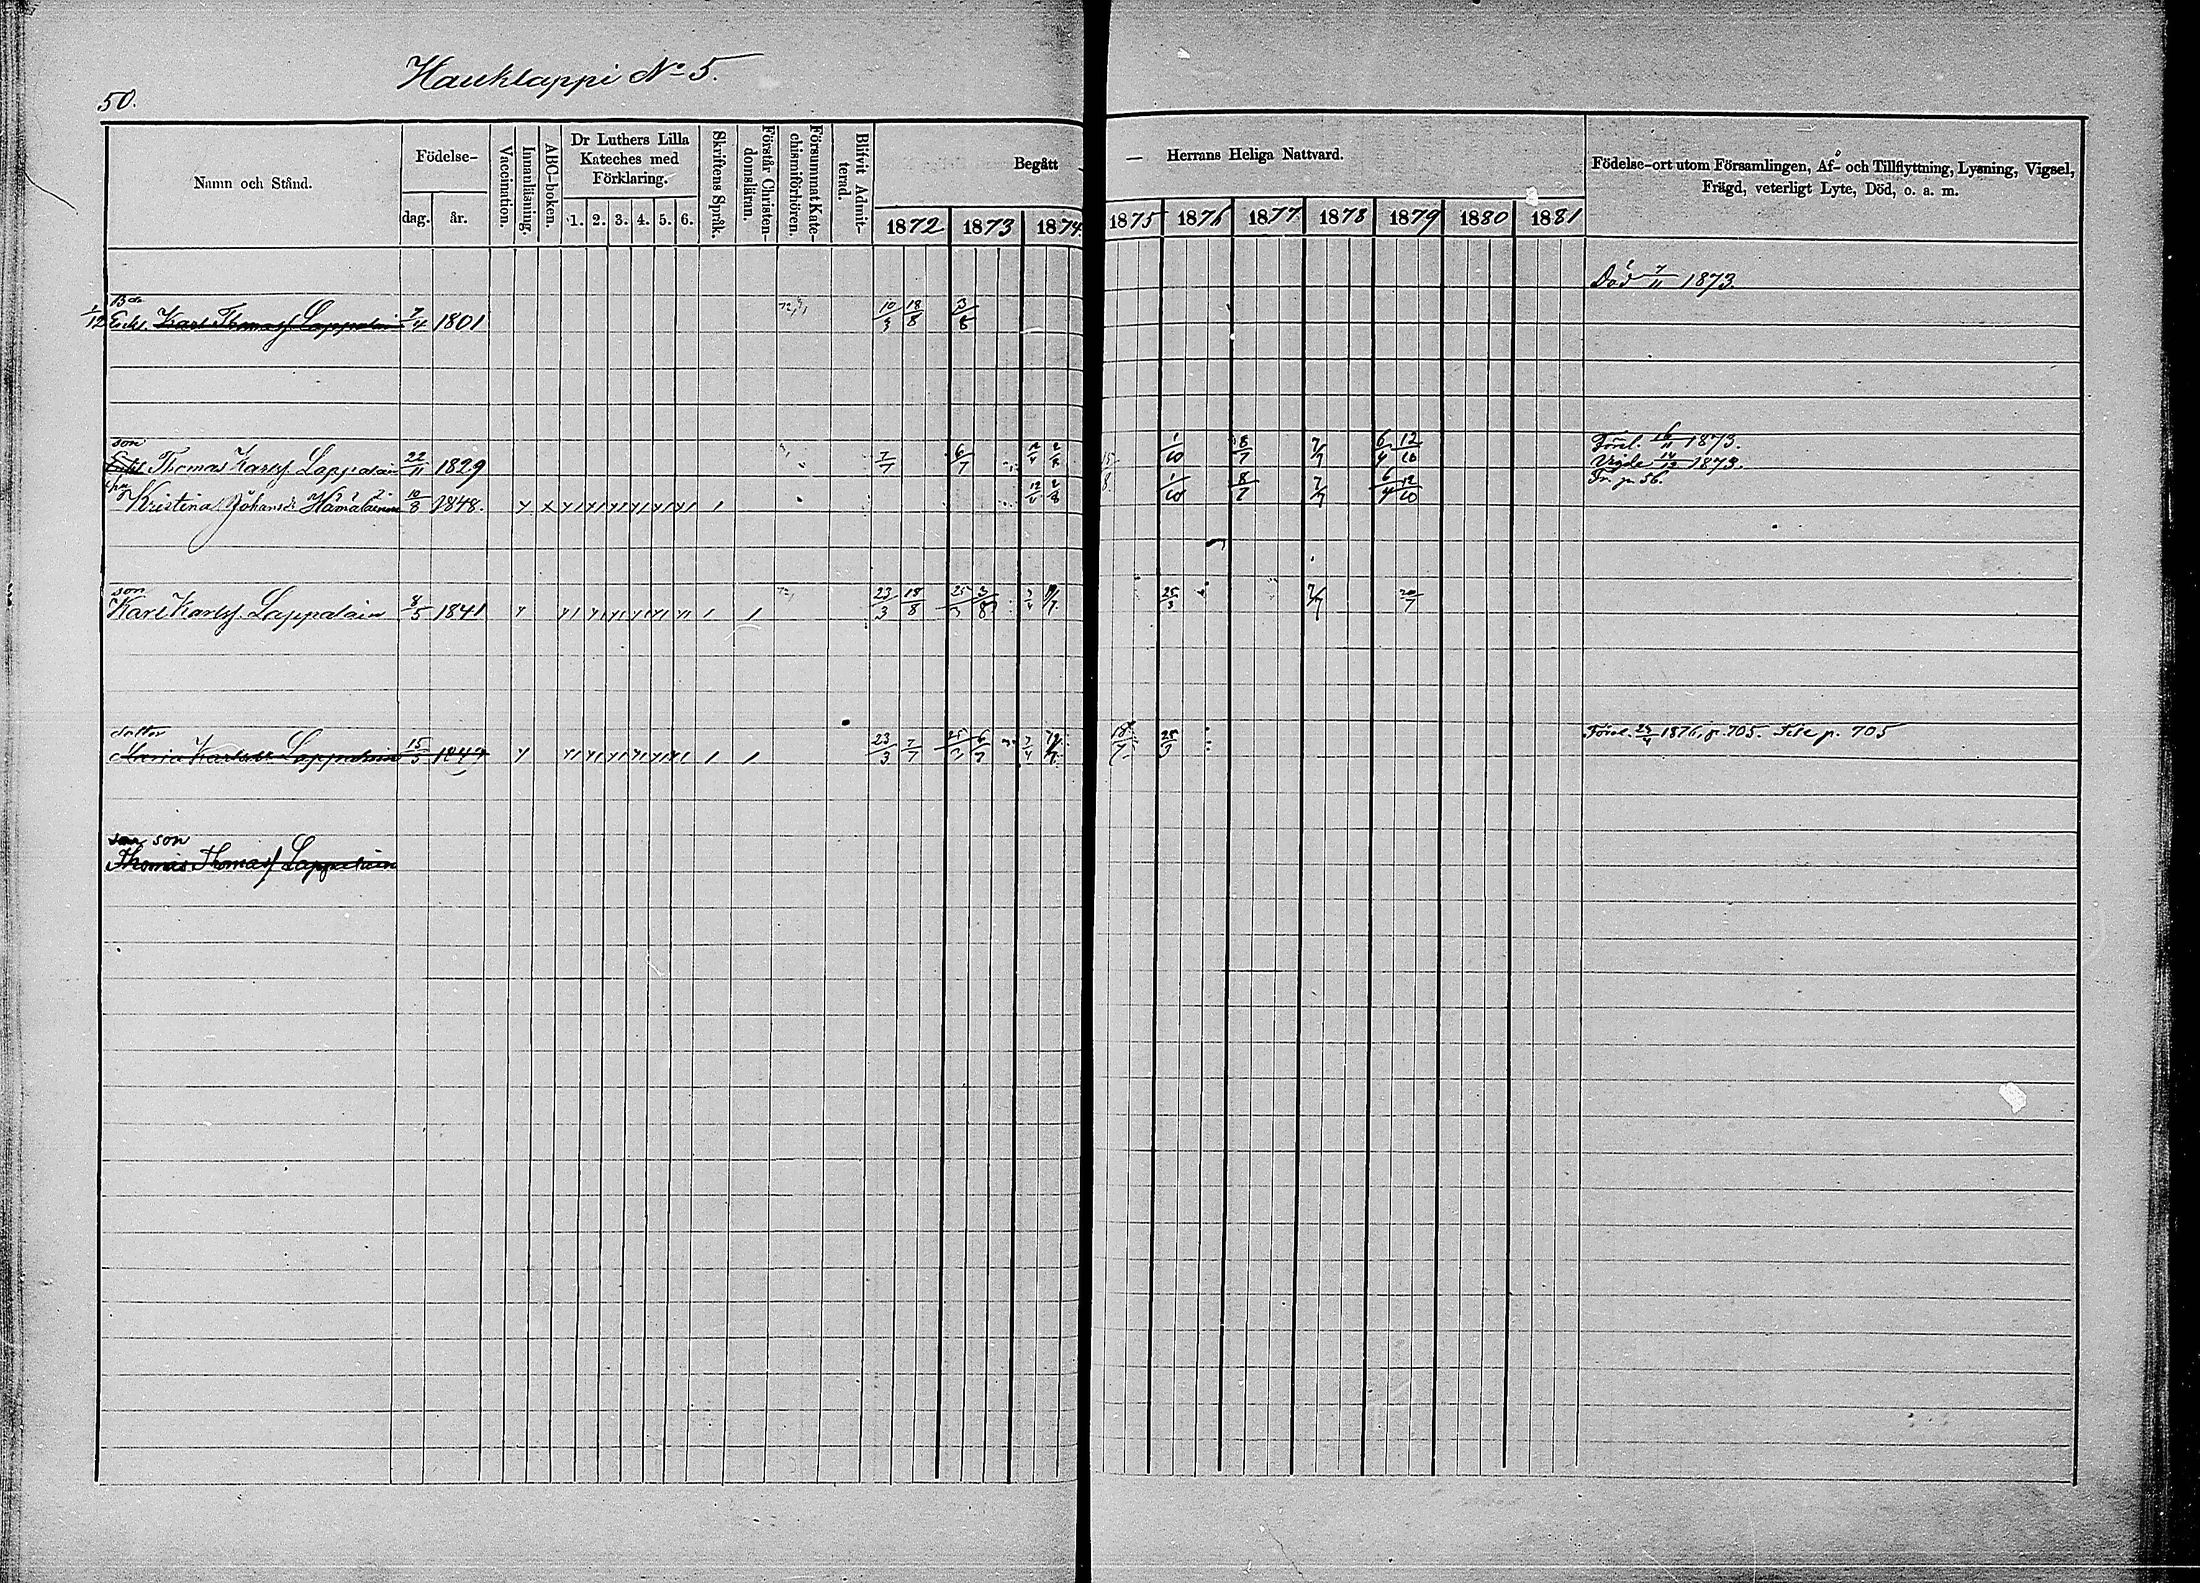 50.
Hauklappi No 5.
Namn och Stånd.
Födelse-
dag.
år.
Vaccination.
Innanläsning.
ABC-boken.
Dr Luthers Lilla
Kateches med
Förklaring.
1. 2. 3. 4. 5. 6.
Skriftens Språk.
Förstår Christen-
domsläran.
Försummat Kate-
chismiförhören.
Blifvit Admit-
terad.
Begått — Herrans Heliga Nattvard.
1872 1873 1874 1875 1876 1877 1878 1879 1880 1881
Födelse-ort utom Församlingen, Af- och Tillflyttning, Lysning, Vigsel,
Frägd, veterligt Lyte, Död, o. a. m.
Död 7/11 1873.
1/12 Karl Thomass Lappalain 7/4 1801 10/3 18/8 3/8
son
Thomas Karlss Lappalain 22/11 1829 7/7 6/7 1/10 8/7 7/7 6/4 12/10 Förel. 16/11 1873.
Vigde 14/12 1873.
Kristina Johansdr Hämäläinen 10/3 1848. 1/10 8/7 7/7 6/4 12/10 Fr. p. 56.
son
Karl Karlss. Lappalain 8/5 1841 23/3 18/8 25/3 3/8 25/3 7/7 20/7
dotter
Maria Karlsdr Lappalain 15/5 23/3 7/7 25/3 6/7 25/3 1876, p. 705. p. 705
son son
Thomas Thomass Lappalain